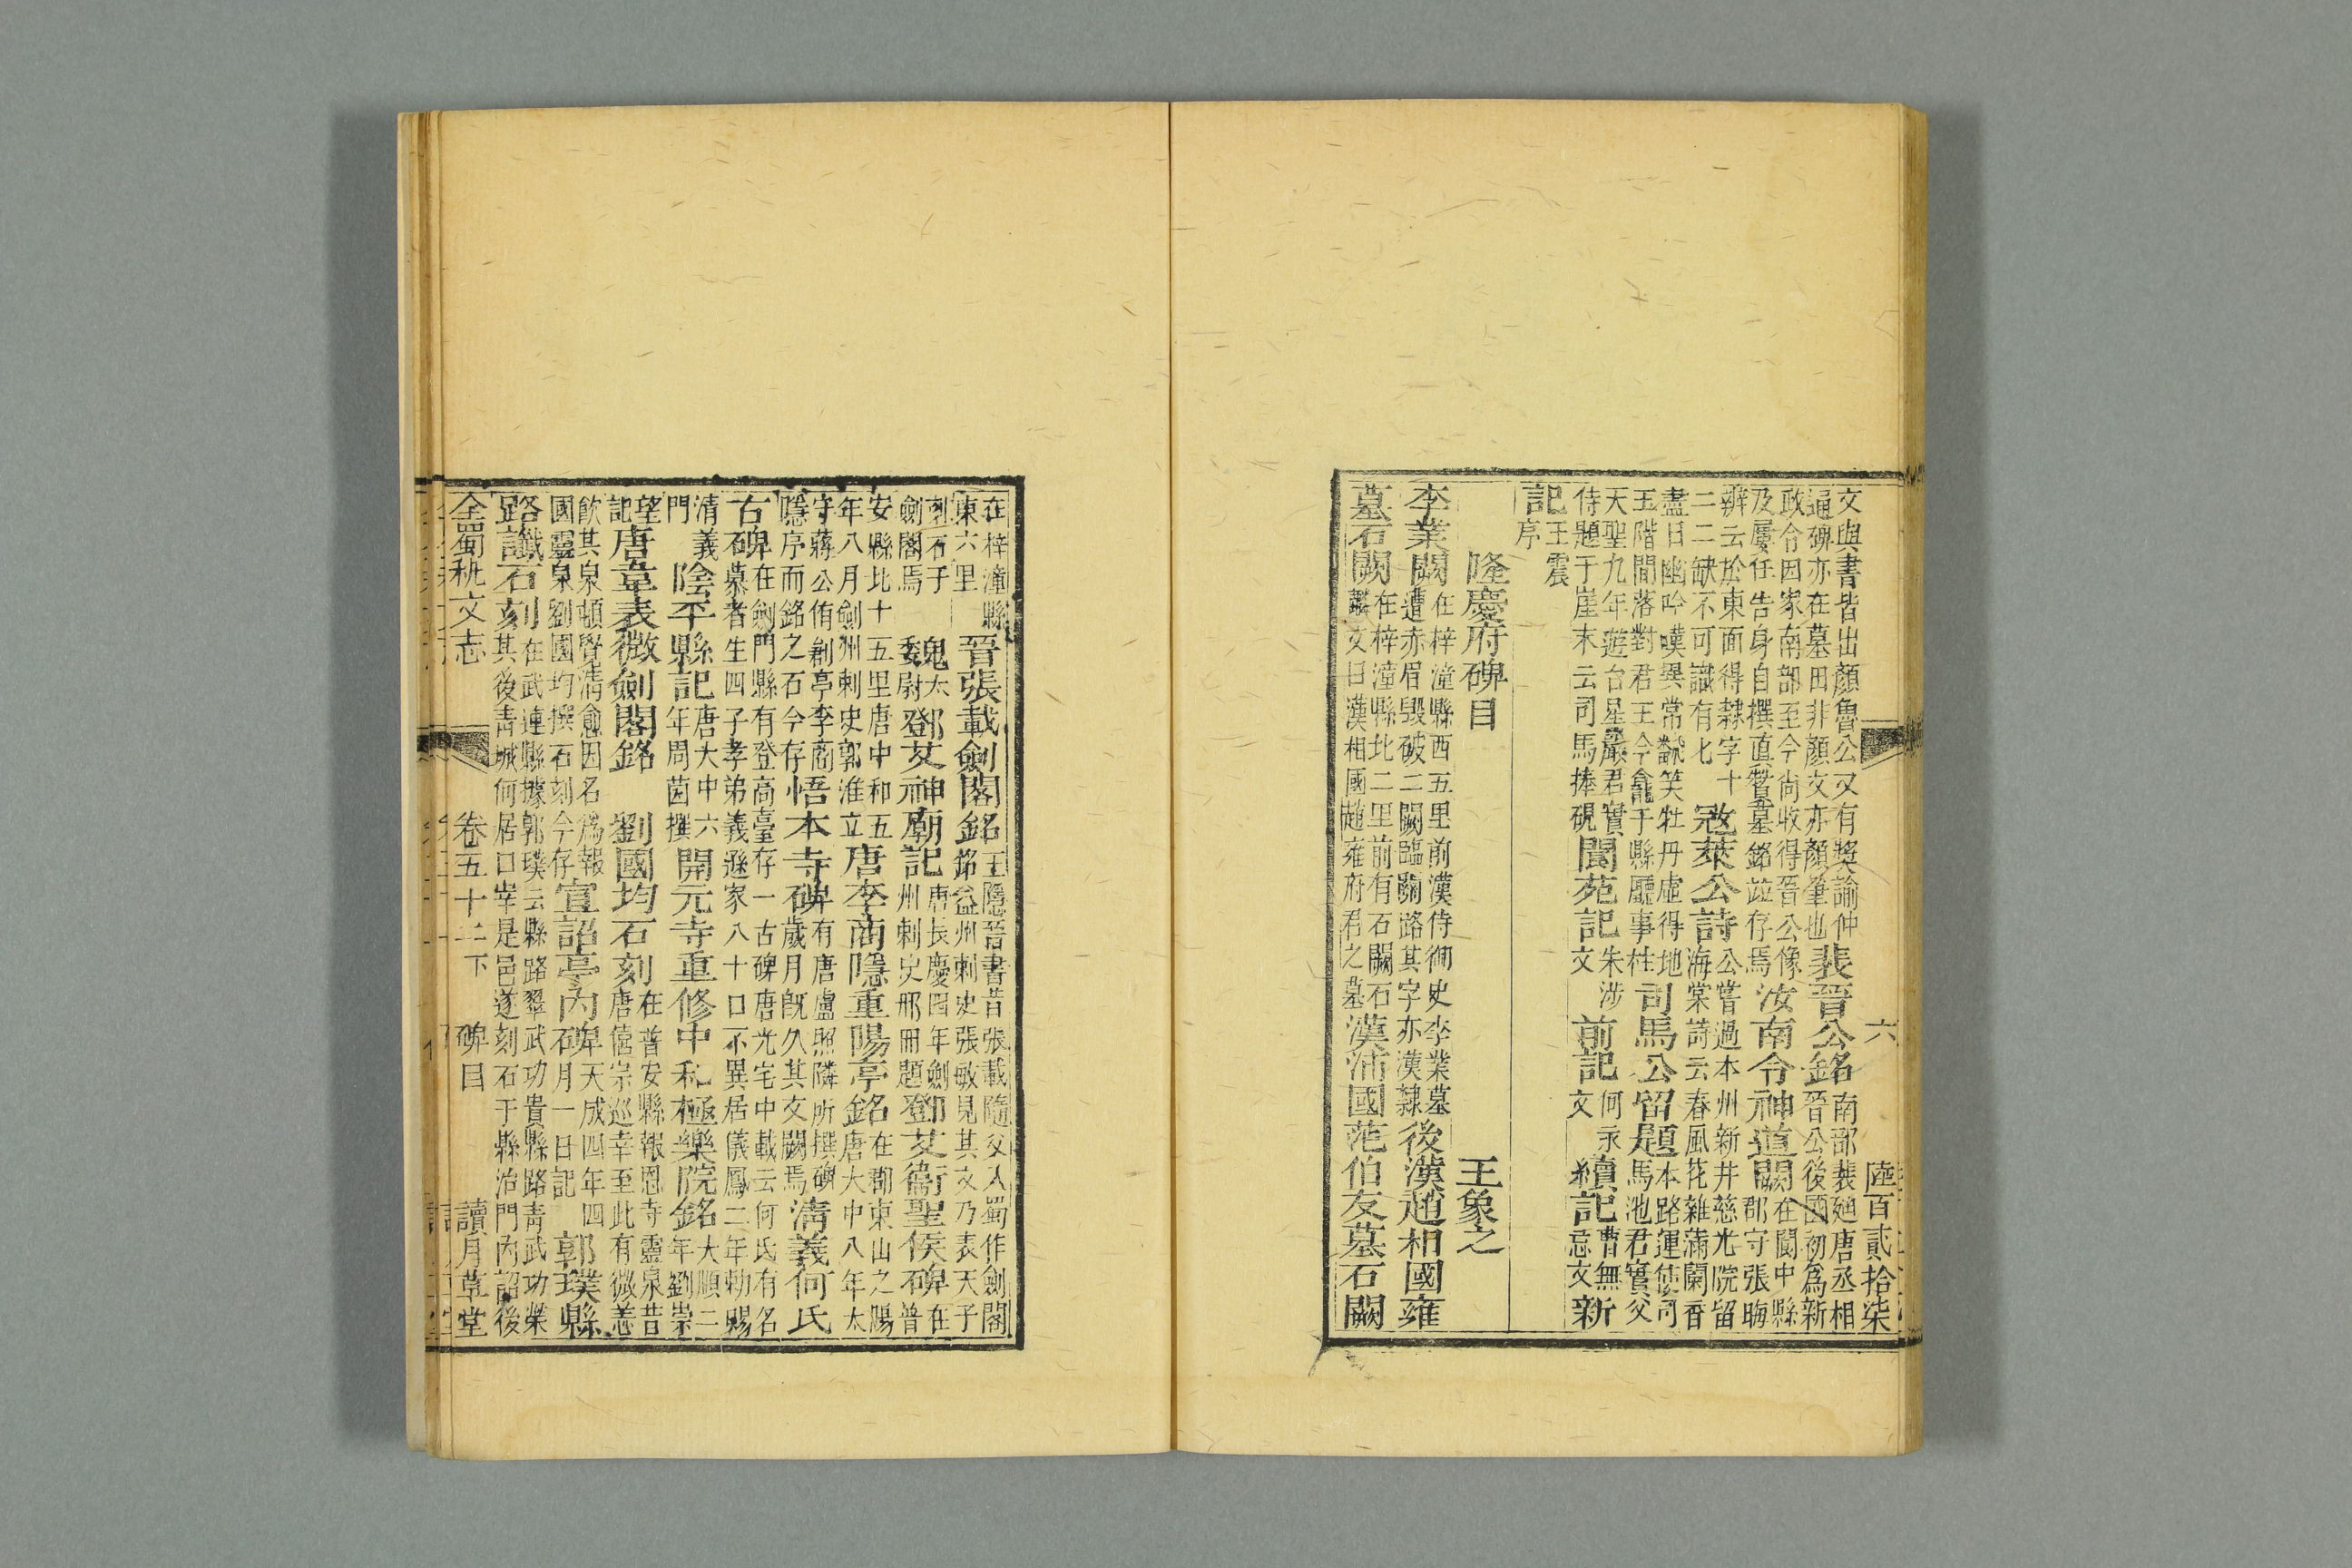 六　陸百貳拾柒
文與書皆出顏魯公又有獎諭仲
通碑亦在墓田非顏文亦顏筆也裴晉公銘南部裴廸唐丞相
晉公後國初爲新
政令因家南部至今尚收得晉公像
及屢任告身自撰直贊墓銘並存焉汝南令神道闕在閬中縣
郡守張晦
辨云於東面得隸字十
二二缺不可識有七寇萊公詩公嘗過本州新井慈光院留
海棠詩云春風花雜滿闌香
盡日幽吟嘆異常飜笑牡丹虛得地
玉階閒落對君王今龕于縣廳事柱司馬公留題本路運使司
馬池君實父
天聖九年遊台星巖君實
侍題于崖末云司馬捧硯閬苑記朱涉
文前記何永
文續記曹無
忌文新
記王震
序
隆慶府碑目　王象之
李業闕在梓潼縣西五里前漢侍御史李業墓
遭赤眉毀破二闕臨闕路其字亦漢隸後漢趙相國雍
墓石闕在梓潼縣北二里前有石闕石
麟文曰漢相國趙雍府君之墓漢蒲國范伯友墓石闕
在梓潼縣
東六里晉張載劍閣銘王隱晉書昔張載隨父入蜀作劍閣
銘益州刺史張敏見其文乃表天子
刻石于
劍閣焉魏太
尉鄧艾神廟記唐長慶四年劍
州刺史邢冊題鄧艾衛聖侯碑在
普
安縣北十五里唐中和五
年八月劍州刺史郭淮立唐李商隱重陽亭銘在郡東山之陽
唐大中八年太
守蔣公侑創亭李商
隱序而銘之石今存悟本寺碑有唐盧照隣所撰碑
歲月旣久其文闕焉淸義何氏
古碑在劍門縣有登高臺存一古碑唐光宅中載云何氏有名
慕者生四子孝弟義遜家八十口不異居儀鳳二年勑賜
淸義
門陰平縣記唐大中六
年周茵撰開元寺重修中和極樂院銘大順二
年劉崇
望
記唐韋表微劍閣銘　劉國均石刻在普安縣報恩寺靈泉昔
唐僖宗巡幸至此有微恙
飮其泉頓覺淸愈因名爲報
國靈泉劉國均撰石刻今存宣詔亭內碑天成四年四
月一日記郭璞縣
路讖石刻在武連縣據郭璞云縣路翠武功貴縣路靑武功榮
其後靑城何居口宰是邑遂刻石于縣治門內詔後
全蜀秇文志　卷五十二下　碑目　讀月草堂